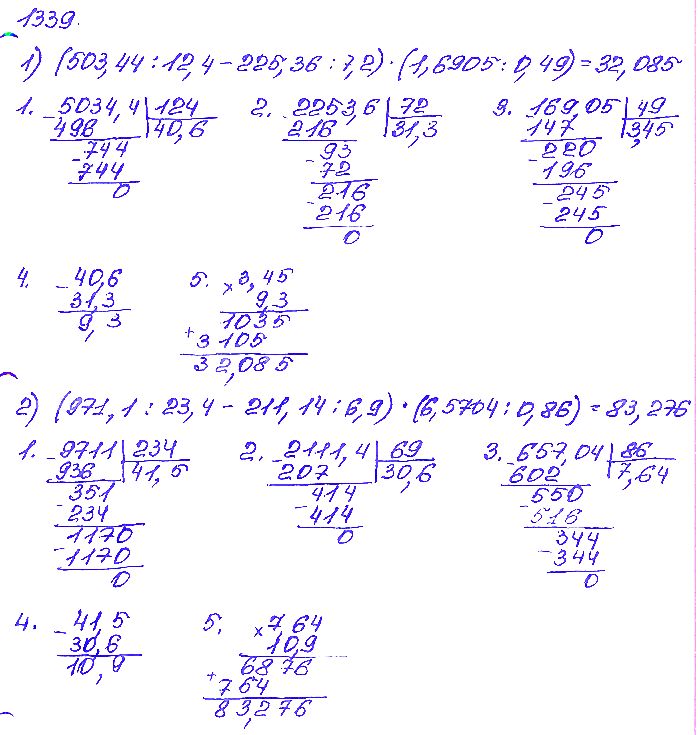 1339.
1) (503,44 : 12,4 - 225,36 : 7,2) · (1,6905 : 0,49) = 32,085
1. - 5034,4 | 124 2. - 2253,6 | 72 3. - 169,05 | 49
496 40,6 216 31,3 147 3,45
- 744 93 220
744 - 72 - 196
0 216 - 245
- 216 245
0 0
4. - 40,6 5. × 3,45
31,3 9,3
9,3 1035
+ 3 105
32,085
2) (971,1 : 23,4 - 211,14 : 6,9) · (6,5704 : 0,86) = 83,276
1. - 9711 | 234 2. - 2111,4 | 69 3. - 657,04 | 86
936 41,5 207 30,6 602 7,64
351 414 550
- 234 - 414 - 516
1170 0 344
- 1170 - 344
0 0
4. - 41,5 5. × 7,64
30,6 10,9
10,9 6876
+ 764
83,276